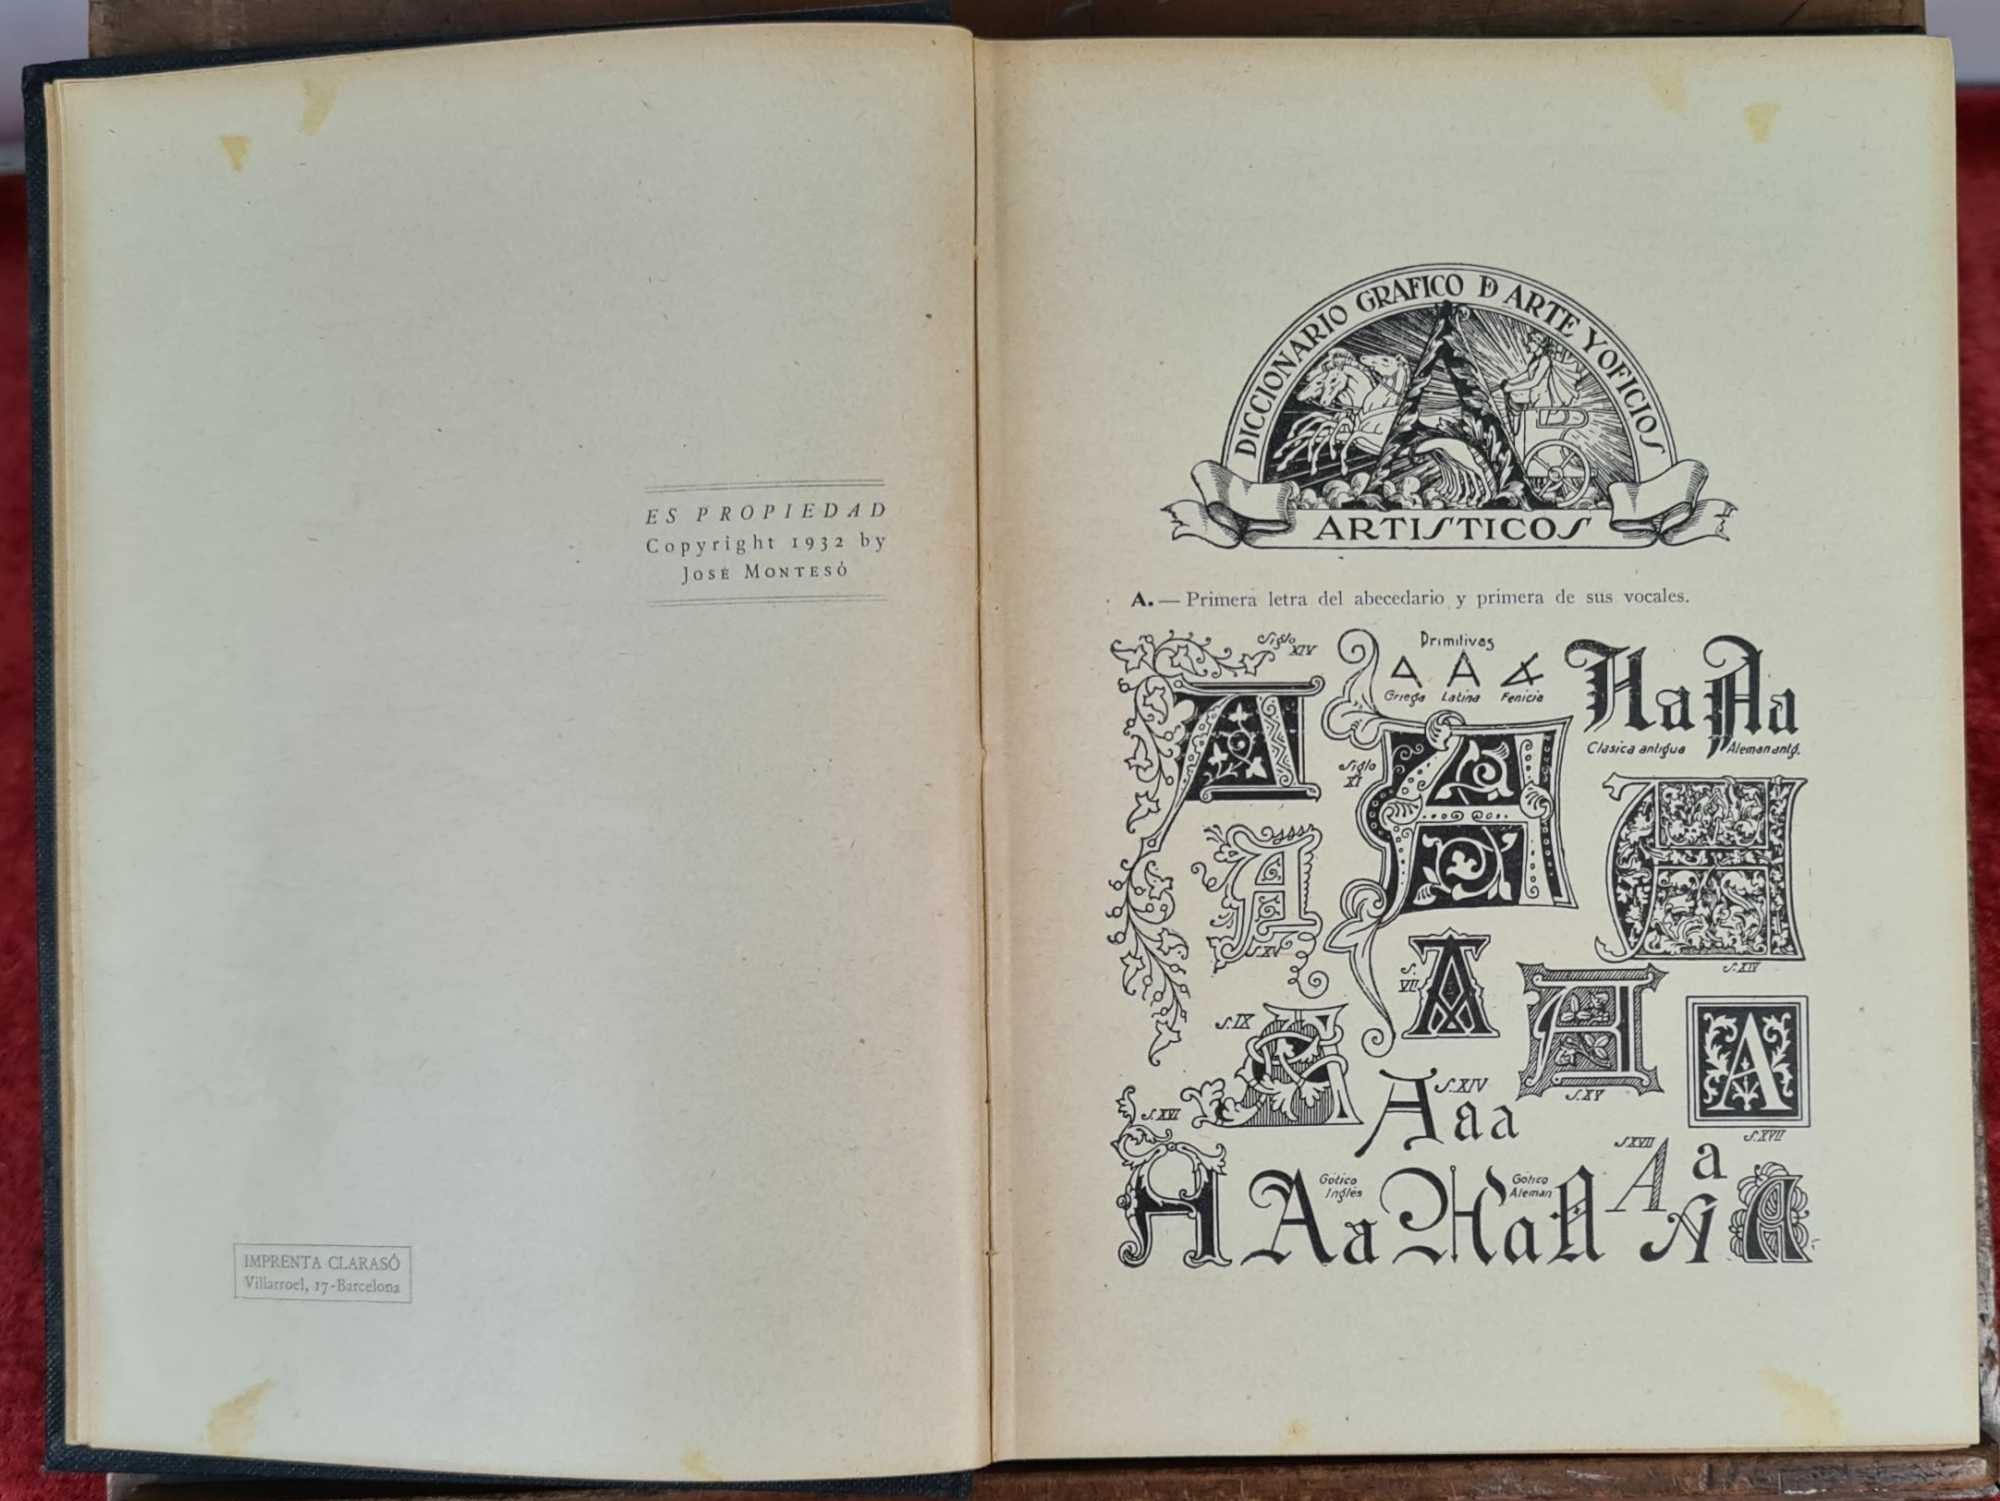 ES PROPIEDAD
Copyright 1932 by
JOSÉ MONTESÓ
IMPRENTA CLARASÓ
Villarroel, 17-Barcelona
DICCIONARIO GRAFICO DE ARTE Y OFICIOS
ARTISTICOS
A.— Primera letra del abecedario y primera de sus vocales.
Siglo XIV
Primitivas
A A A
Griega Latina Fenicia
Aa Aa
Clasica antigua Aleman antg.
A
Siglo XI
A
A
S.XV
A
S.XIV
S. VII
A
A
S.XV
A
S.XVII
S.IX
A
A a a
S.XIV
S.XVI
A
Aa
Gótico Inglés
Aa A
Gótico Aleman
S.XVII
A a
A
A